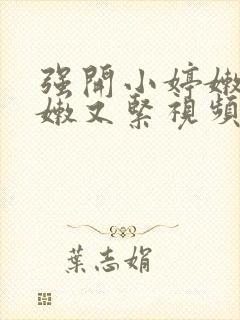 强開小婷嫩
嫩又緊視頻
葉志娟